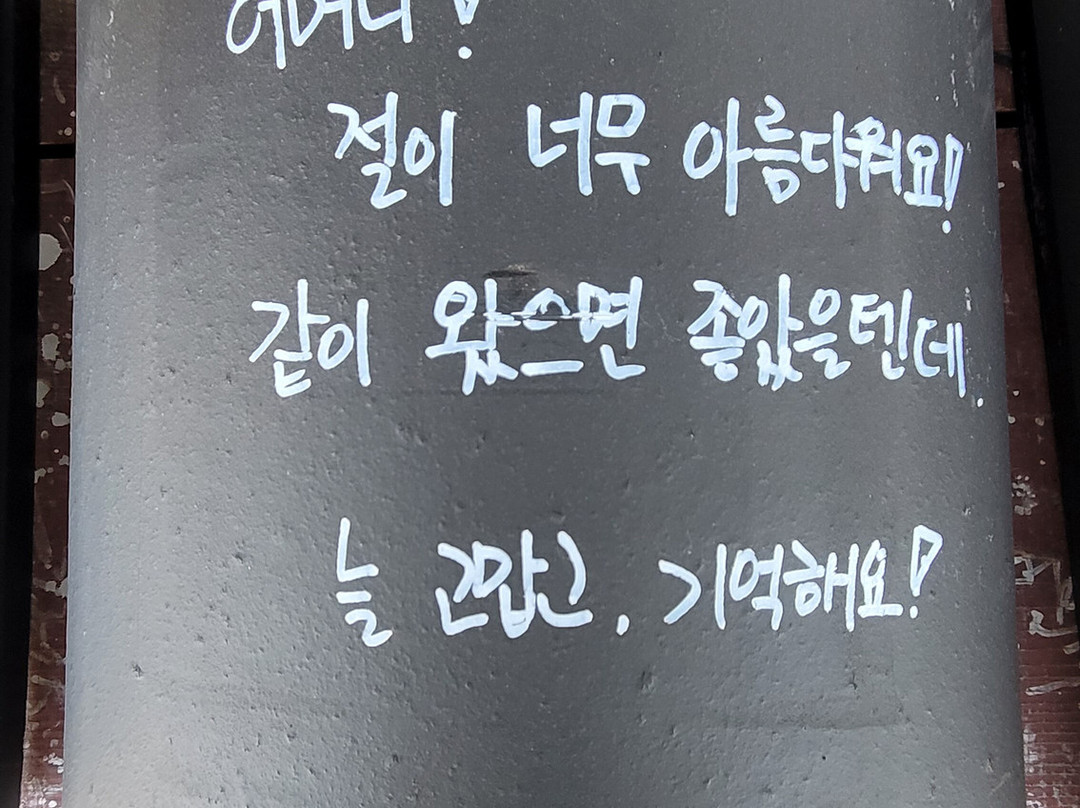 어머니!
절이 너무 아름다워요!
같이 왔으면 좋았을텐데.
늘 고맙고, 기억해요!